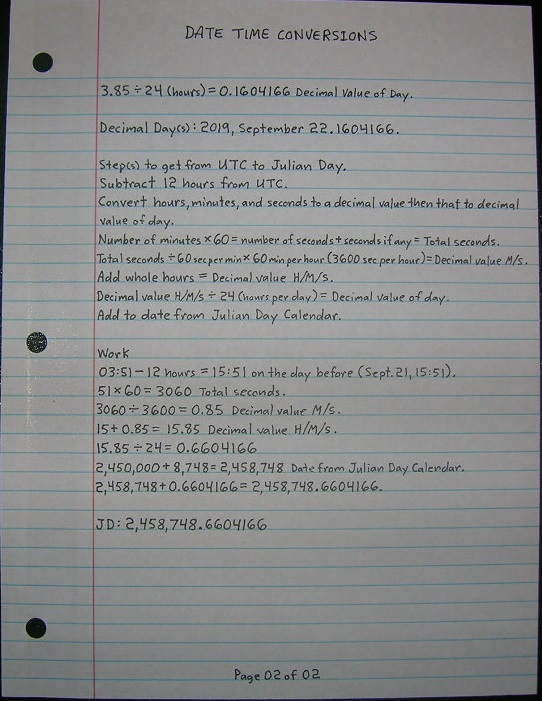 DATE TIME CONVERSIONS
3.85÷24 (hours)=0.1604166 Decimal Value of Day.
Decimal Day(s): 2019, September 22.1604166.
Step(s) to get from UTC to Julian Day.
Subtract 12 hours from UTC.
Convert hours, minutes, and seconds to a decimal value then that to decimal
value of day.
Number of minutes × 60 = number of seconds + seconds if any = Total seconds.
Total seconds ÷ 60 sec per min × 60 min per hour (3600 sec per hour) = Decimal value M/S.
Add whole hours = Decimal value H/M/S.
Decimal value H/M/S ÷ 24 (hours per day) = Decimal value of day.
Add to date from Julian Day Calendar.
Work
03:51-12 hours = 15:51 on the day before (Sept. 21, 15:51).
51×60=3060 Total seconds.
3060÷3600=0.85 Decimal value M/S.
15+0.85=15.85 Decimal value H/M/S.
15.85÷24=0.6604166
2,450,000+8,748=2,458,748 Date from Julian Day Calendar.
2,458,748+0.6604166=2,458,748.6604166.
JD: 2,458,748.6604166
Page 02 of 02